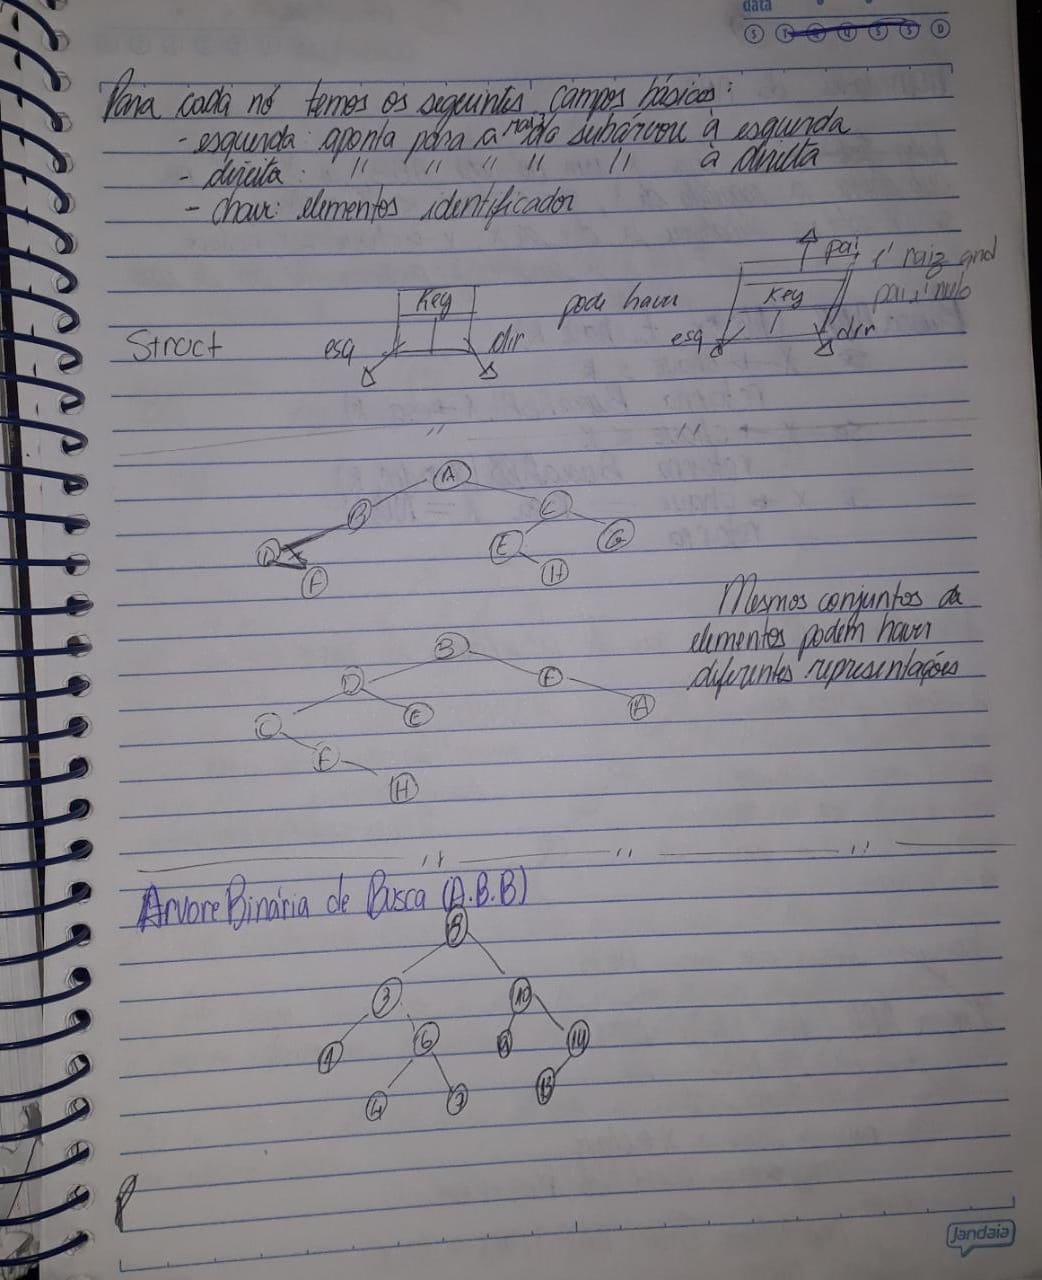 data
S T Q Q S S D
Para cada nó temos os siguintes campos básicos:
- esquerda: aponta para a raiz da subárvore à esquerda
- direita: " " " " " à direita
- chave: elementos identificador
Struct
esq Key dir
pode haver
pai
Key
esq dir
é raiz qnd
pai é nulo
A
B C
D E G
F H
B
D F
C E A
F
H
Mesmos conjuntos de
elementos podem haver
diferentes representações
Arvore Binária de Busca (A.B.B)
8
3 10
1 6 9 14
4 7 13
Jandaia